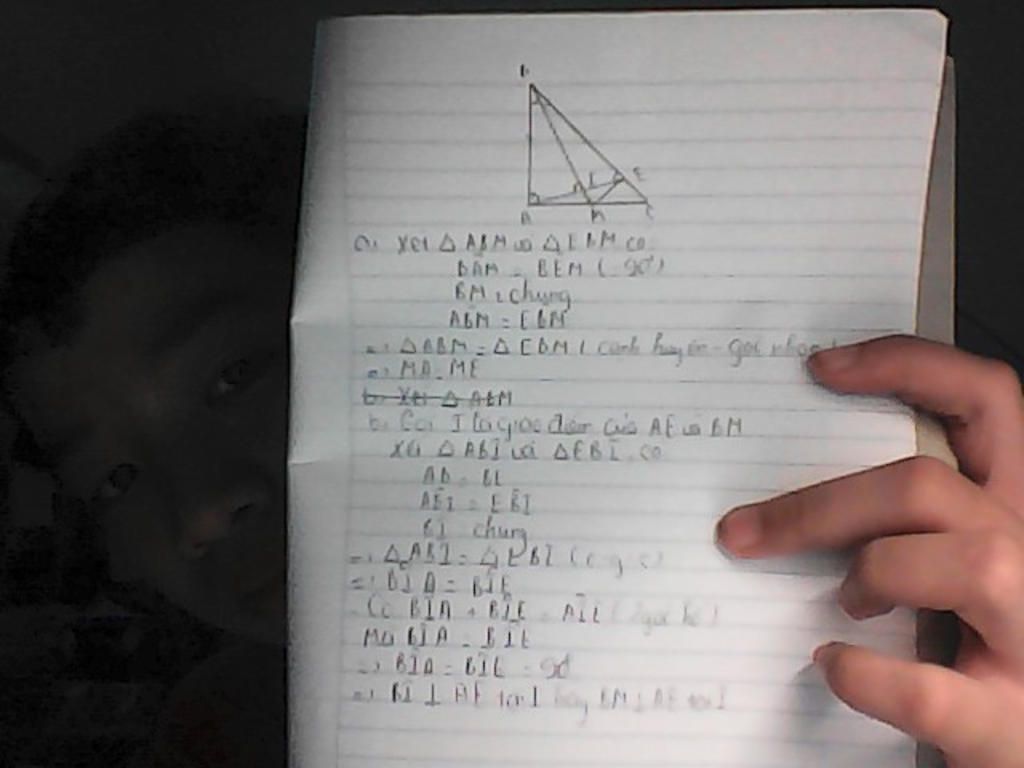 B
I E
A M C
a. Xét △ ABM và △ EBM có
BÂM = BÊM (= 90°)
BM: chung
ABM = EBM
=> △ ABM = △ EBM (cạnh huyền - góc nhọn)
=> MA = ME
b. Xét △ AEM
b. Gọi I là giao điểm của AE và BM
Xét △ ABI và △ EBI có
AB = BE
ABI = EBI
BI chung
=> △ ABI = △ EBI (c.g.c)
=> BIA = BIE
Có BIA + BIE = AIE (2 góc kề)
Mà BIA = BIE
=> BIA = BIE = 90°
=> BI ⊥ AE tại I hay BM ⊥ AE tại I